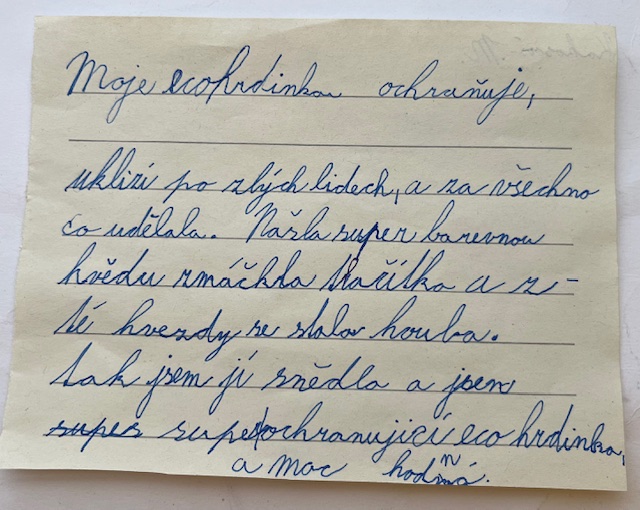 Moje ecohrdinka ochraňuje,
uklizí po zlých lidech, a za všechno
co udělala. Našla super barevnou
hvědu zmáčkla tlačítko a z-
té hvezdy se stala houba.
tak jsem jí snědla a jsem
super super ochranujicí eco hrdinka,
a moc hodná.